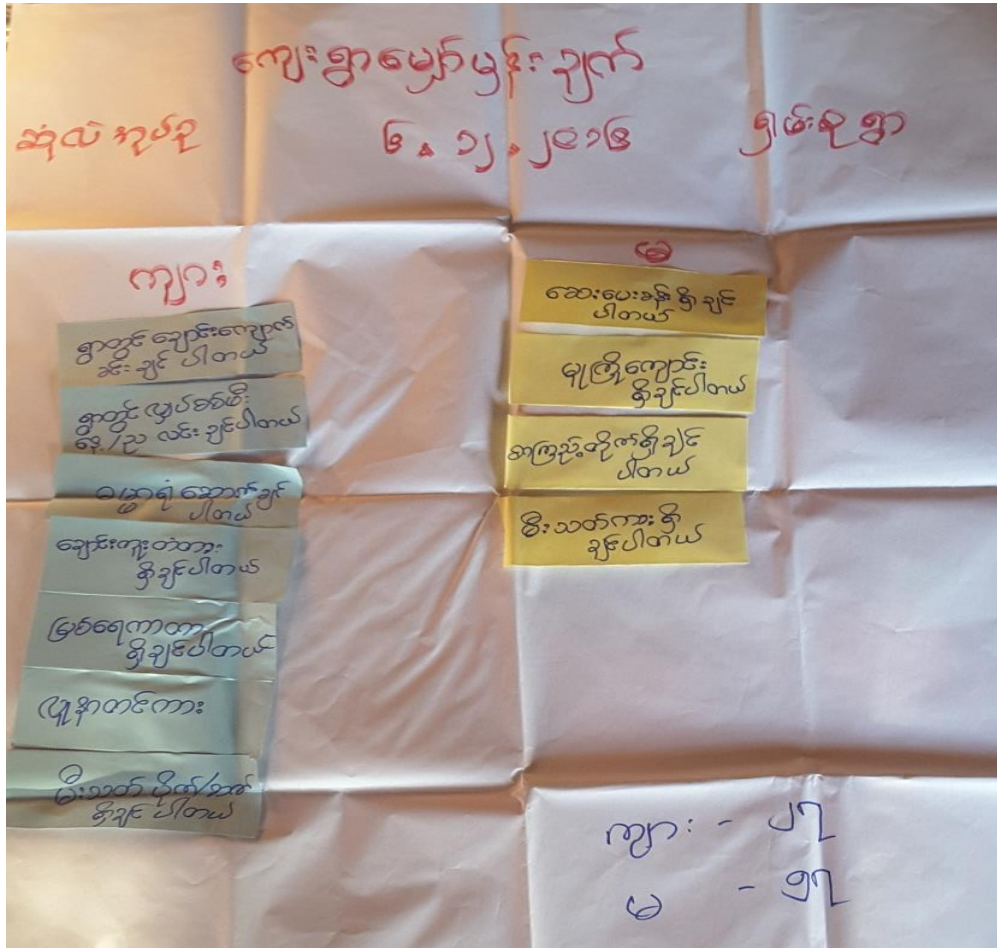 ကျေးရွာမျှော်မှန်းချက်
ဆုံလဲအုပ်စု
၆.၁၂.၂၀၁၆
ရှမ်းစုရွာ
ကျား
ရွာတွင်းချောင်းကျောက်
ခင်းချင်ပါတယ်
ရွာတွင်လျှပ်စစ်မီး
နေ့/ည လင်းချင်ပါတယ်
ဓမ္မာရုံဆောက်ချင်
ပါတယ်
ချောင်းကူးတံတား
ရှိချင်ပါတယ်
မြစ်ရေကာတာ
ရှိချင်ပါတယ်
လူနာတင်ကား
မီးသတ်ပိုက်/ဘက်
ရှိချင်ပါတယ်
မ
ဆေးပေးခန်းရှိချင်
ပါတယ်
မူကြိုကျောင်း
ရှိချင်ပါတယ်
စာကြည့်တိုက်ရှိချင်
ပါတယ်
မီးသတ်ကားရှိ
ချင်ပါတယ်
ကျား - ၂၇
မ - ၅၇